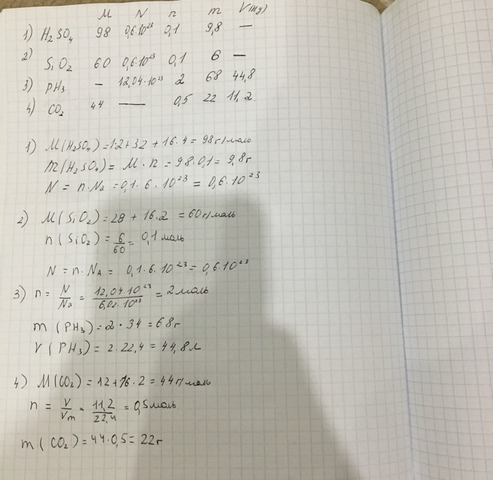 M N n m V(н.у)
1) H₂SO₄ 98 0,6·10²³ 0,1 9,8 —
2) SiO₂ 60 0,6·10²³ 0,1 6 —
3) PH₃ — 12,04·10²³ 2 68 44,8
4) CO₂ 44 — 0,5 22 11,2
1) M(H₂SO₄)=1·2+32+16·4=98г/моль
m(H₂SO₄)=M·n=98·0,1=9,8г
N=n·Nₐ=0,1·6·10²³=0,6·10²³
2) M(SiO₂)=28+16·2=60г/моль
n(SiO₂)=6/60=0,1моль
N=n·Nₐ=0,1·6·10²³=0,6·10²³
3) n=N/Nₐ=12,04·10²³/6,02·10²³=2моль
m(PH₃)=2·34=68г
V(PH₃)=2·22,4=44,8л
4) M(CO₂)=12+16·2=44г/моль
n=V/Vm=11,2/22,4=0,5моль
m(CO₂)=44·0,5=22г